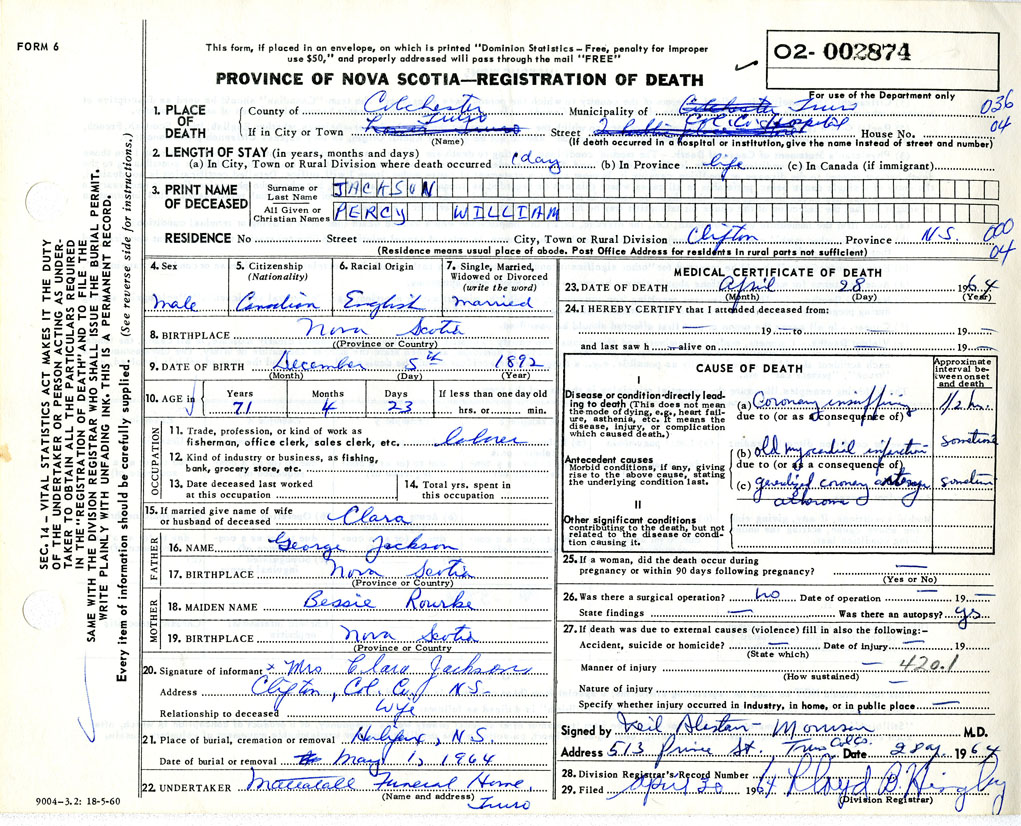 FORM 6
This form, if placed in an envelope, on which is printed "Dominion Statistics – Free, penalty for improper
use $50," and properly addressed will pass through the mail "FREE"
O2- 002874
PROVINCE OF NOVA SCOTIA—REGISTRATION OF DEATH
For use of the Department only
036
04
1. PLACE OF DEATH
County of Colchester
Municipality of Colchester Truro
If in City or Town Truro
(Name)
Street Col. Co. Hospital House No.
(If death occurred in a hospital or institution, give the name instead of street and number)
2. LENGTH OF STAY (in years, months and days)
(a) In City, Town or Rural Division where death occurred 1 day (b) In Province life (c) In Canada (if immigrant)
3. PRINT NAME OF DECEASED
Surname or Last Name JACKSON
All Given or Christian Names PERCY WILLIAM
RESIDENCE No Street City, Town or Rural Division Clifton Province N.S.
000
04
(Residence means usual place of abode. Post Office Address for residents in rural parts not sufficient)
4. Sex
Male
5. Citizenship
(Nationality)
Canadian
6. Racial Origin
English
7. Single, Married,
Widowed or Divorced
(write the word)
Married
8. BIRTHPLACE Nova Scotia
((Province or Country)
9. DATE OF BIRTH December 5th 1892
(Month) (Day) (Year)
10. AGE in
Years Months Days If less than one day old
71 4 23 hrs. or min.
OCCUPATION
11. Trade, profession, or kind of work as
fisherman, office clerk, sales clerk, etc. Laborer
12. Kind of industry or business, as fishing,
bank, grocery store, etc.
13. Date deceased last worked
at this occupation
14. Total yrs. spent in
this occupation
15. If married give name of wife
or husband of deceased Clara
FATHER
16. NAME George Jackson
17. BIRTHPLACE Nova Scotia
(Province or Country)
MOTHER
18. MAIDEN NAME Bessie Rourke
19. BIRTHPLACE Nova Scotia
(Province or Country)
20. Signature of informant x Mrs Clara Jackson
Address Clifton, Col. Co. N.S.
Relationship to deceased Wife
21. Place of burial, cremation or removal Halifax, N.S.
Date of burial or removal May 1, 1964
22. UNDERTAKER Mattatall Funeral Home,
(Name and address) Truro
9004–3.2: 18-5-60
MEDICAL CERTIFICATE OF DEATH
23. DATE OF DEATH April 28 1964
(Month) (Day) (Year)
24. I HEREBY CERTIFY that I attended deceased from:
— 19 — to — 19 —
and last saw h — alive on — 19 —
CAUSE OF DEATH
Approximate
interval be-
tween onset
and death
I
Disease or condition directly lead-
ing to death (This does not mean
the mode of dying, e.g., heart fail-
ure, asthenia, etc. It means the
disease, injury, or complication
which caused death.)
(a) Coronary insufficiency 1/2 hr.
due to (or as a consequence of)
Antecedent causes
Morbid conditions, if any, giving
rise to the above cause, stating
the underlying condition last.
(b) old myocardial infarction sometime
due to (or as a consequence of)
(c) generalized coronary artery sometime
atheroma
II
Other significant conditions
contributing to the death, but not
related to the disease or condi-
tion causing it.
25. If a woman, did the death occur during
pregnancy or within 90 days following pregnancy? —
(Yes or No)
26. Was there a surgical operation? no Date of operation — 19 —
State findings — Was there an autopsy? yes
27. If death was due to external causes (violence) fill in also the following:–
Accident, suicide or homicide? — Date of injury — 19
(State which)
Manner of injury — 420.1
(How sustained)
Nature of injury —
Specify whether injury occurred in industry, in home, or in public place —
Signed by Neil Alastair Morrison M.D.
Address 513 Prince St. Truro Col Co. Date 28 Ap. 1964
28. Division Registrar's Record Number
29. Filed April 30 1964 Lloyd B.
(Division Registrar)
SEC. 14 – VITAL STATISTICS ACT MAKES IT THE DUTY
OF THE UNDERTAKER OR PERSON ACTING AS UNDER-
TAKER TO OBTAIN ALL THE PARTICULARS REQUIRED
IN THE "REGISTRATION OF DEATH" AND TO FILE THE
SAME WITH THE DIVISION REGISTRAR WHO SHALL ISSUE THE BURIAL PERMIT.
WRITE PLAINLY WITH UNFADING INK. THIS IS A PERMANENT RECORD.
Every item of information should be carefully supplied. (See reverse side for instructions.)